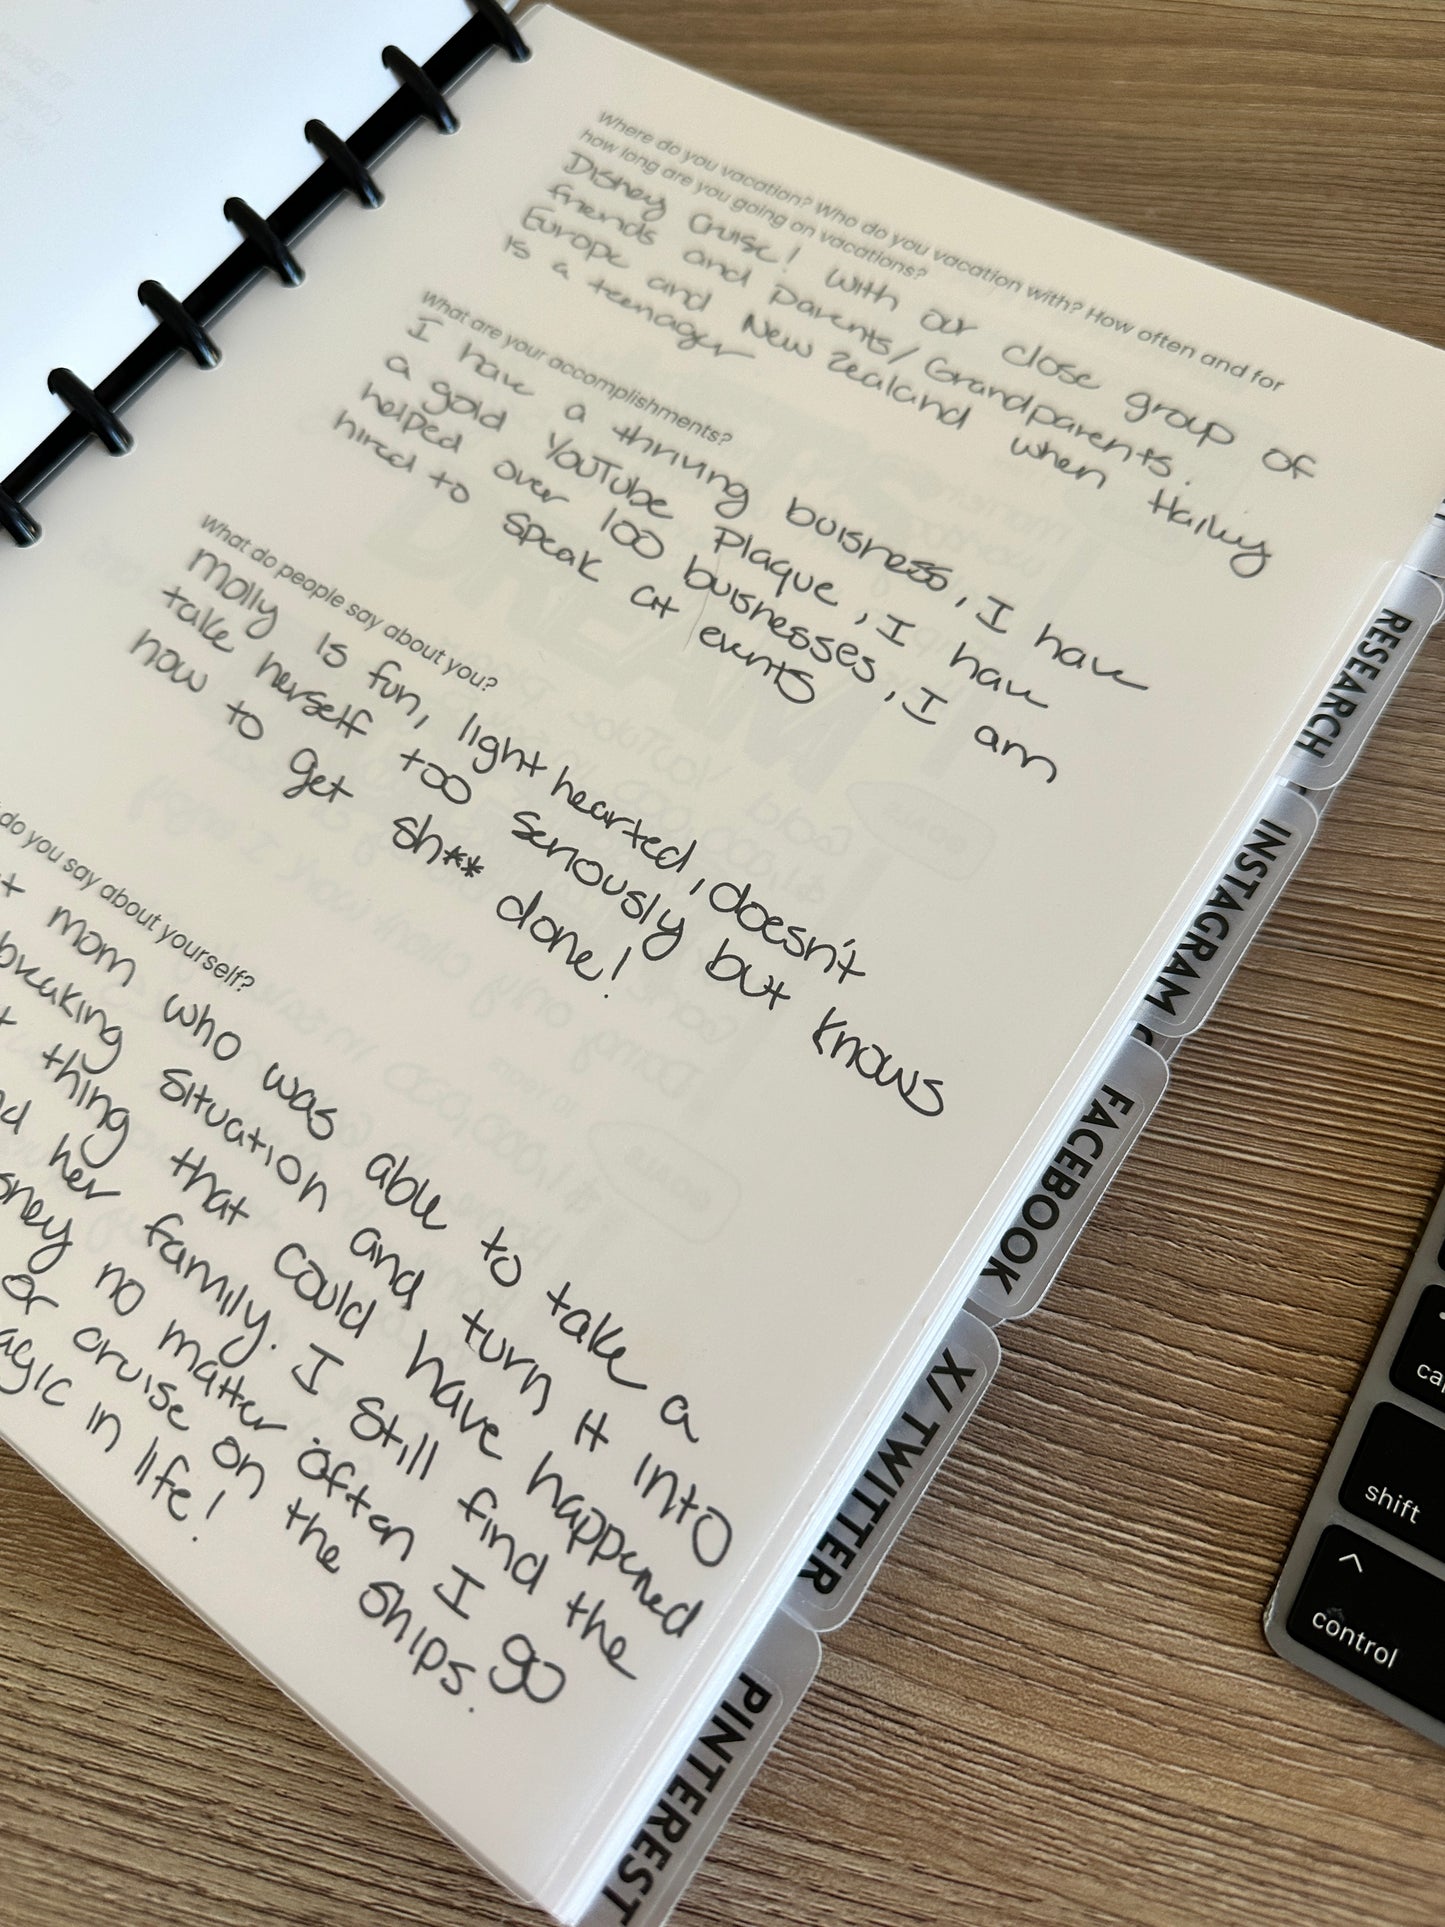 Where do you vacation? Who do you vacation with? How often and for
how long are you going on vacations?
Disney Cruise! With our close group of
friends and parents/Grandparents.
Europe and New Zealand when Hailey
is a teenager
What are your accomplishments?
I have a thriving buisness, I have
a gold YouTube Plaque, I have
helped over 100 buisnesses, I am
hired to speak at events
What do people say about you?
Molly is fun, light hearted, doesn't
take herself too seriously but knows
how to get sh** done!
do you say about yourself?
mom who was able to take a
breaking situation and turn it into
thing that could have happened
her family. I still find the
no matter often I go
or cruise on the ships.
in life!
RESEARCH
INSTAGRAM
FACEBOOK
X/ TWITTER
PINTEREST
shift
control